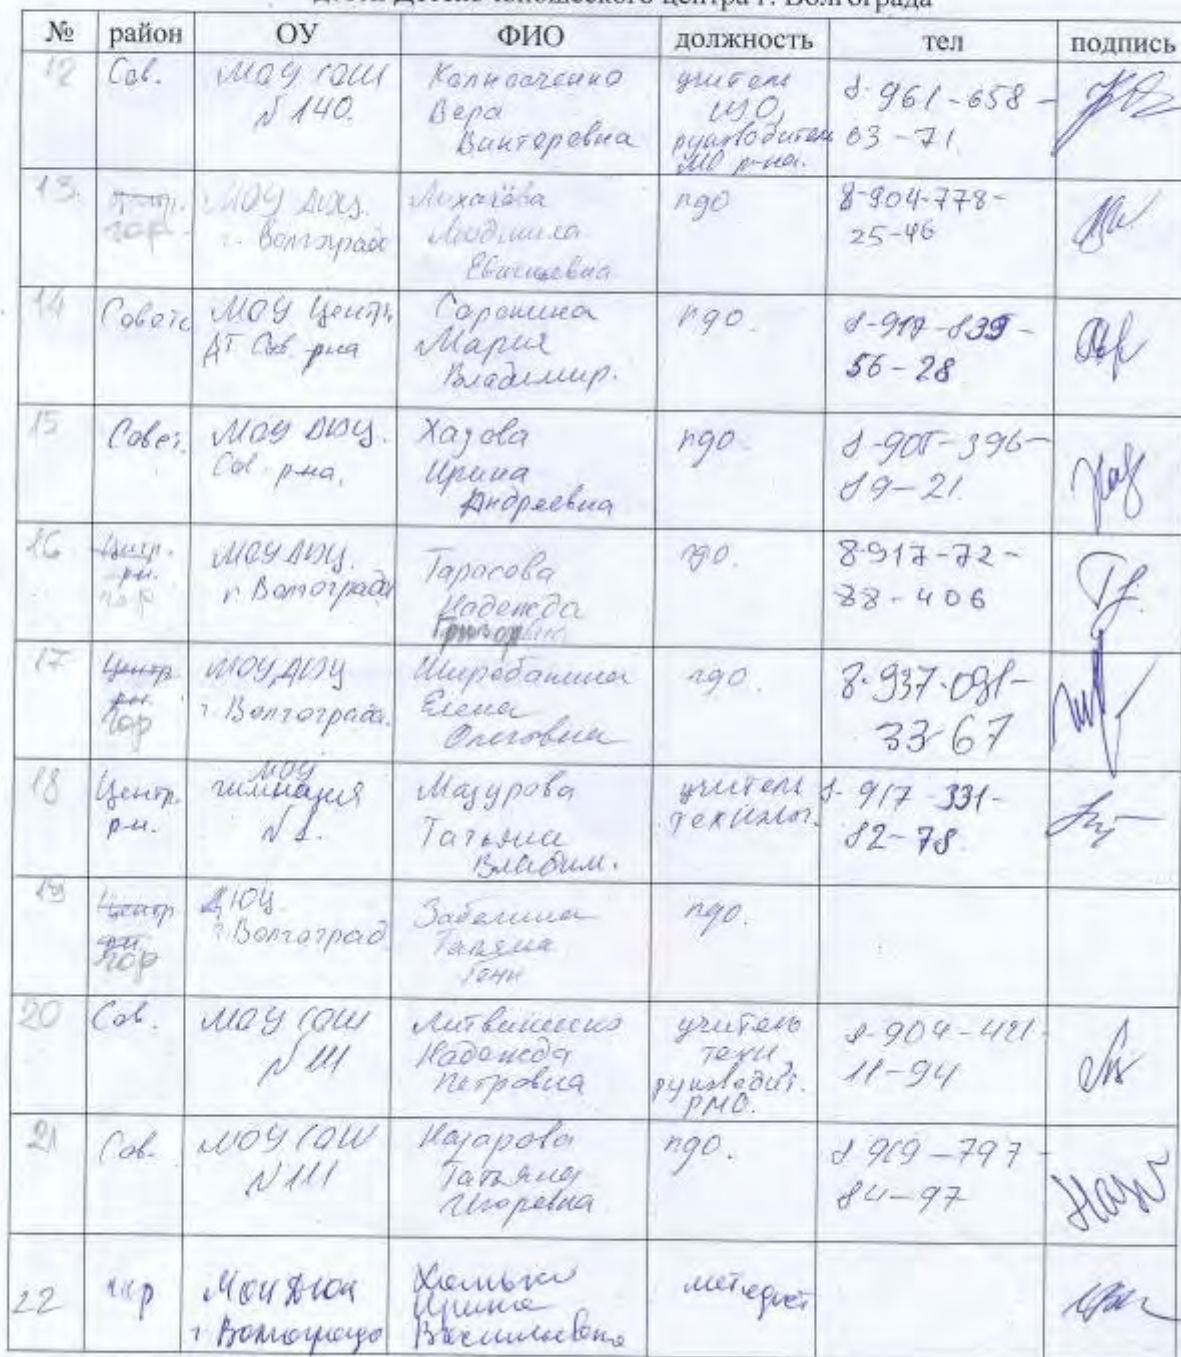 № район ОУ ФИО должность тел подпись
12 Сов. МОУ СОШ
№ 140.
Вера
Викторовна
учитель
ИЗО,
руководитель
МО р-на.
8-961-658-
03-71.
13. гор. МОУ ДЮЦ.
г. Волгограда
Лихачёва
Людмила
Евгеньевна
пдо
8-904-778-
25-46
14 Советс МОУ Центр
ДТ Сов. р-на
Сорокина
Мария
Владимир.
пдо.
8-917-839-
56-28
15 Совет. МОУ ДЮЦ.
Сов. р-на.
Хазова
Ирина
Андреевна
пдо.
8-905-396-
89-21.
16 Центр.
рн.
гор
МОУ ДЮЦ.
г. Волгограда
Тарасова
Надежда
пдо.
8-917-72-
88-406
17 Центр
рн.
гор
МОУ ДЮЦ
г. Волгограда.
Елена
Олеговна
пдо.
8-937-091-
33-67
18 Центр.
р-н.
МОУ
гимназия
Мазурова
Татьяна
Владим.
учитель
технолог.
8-917-331-
82-78.
19 Центр
рн.
гор
ДЮЦ
г. Волгоград
Татьяна
Генн
пдо.
20 Сов. МОУ СОШ
№ 111
Литвиненко
Надежда
Петровна
учитель
техн,
руководит.
РМО.
8-904-421-
11-94
21 Сов. МОУ СОШ
№ 111
Назарова
Татьяна
Игоревна
пдо.
8 969-797-
84-97
22 гор МОУ ДЮЦ
г. Волгограда
Ирина
Васильевна
методист